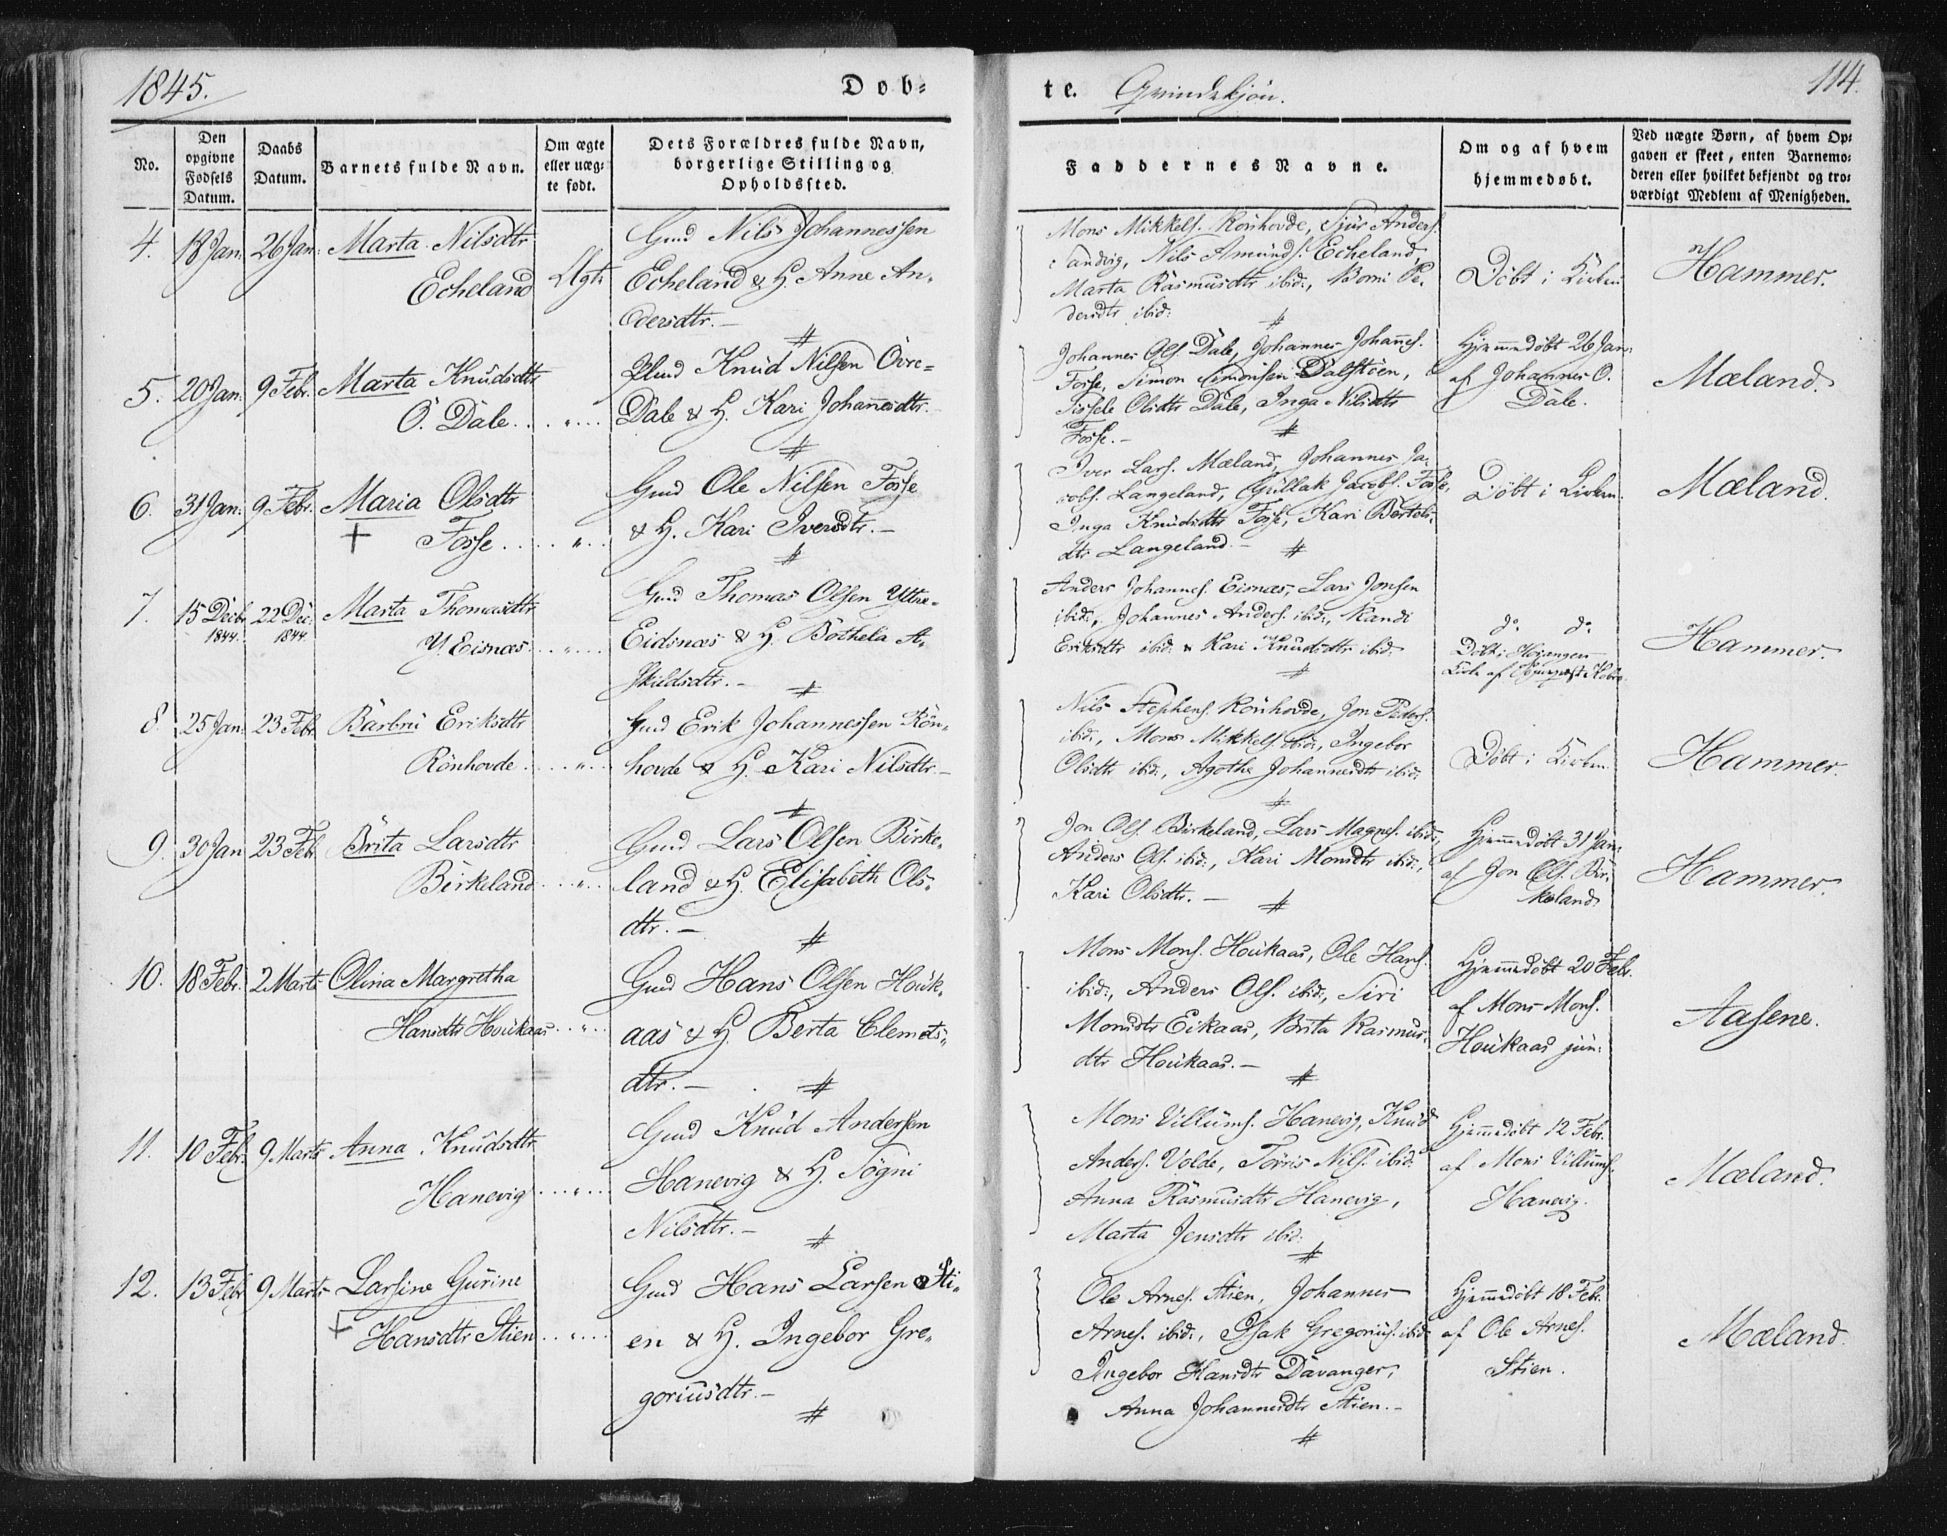 1845.
Døb-
te. Qvindekjön.
114.
No.
Den opgivne Fødsels Datum.
Daabs Datum.
Barnets fulde Navn.
Om ægte eller uæg-
te født.
Dets Forældres fulde Navn,
borgerlige Stilling og
Opholdssted.
Faddernes Navne.
Om og af hvem
hjemmedøbt.
Ved uægte Børn, af hvem Op-
gaven er skeet, enten Barnemo-
deren eller hvilket bekjendt og tro-
værdigt Medlem af Menigheden.
4. 18 Jan: 26 Jan: Marta Nilsdtr
Echeland Ægte
Gmd Nils Johannessen
Echeland & H. Anne An-
dersdtr. —
Mons Mikkels. Rönhovde, Sjur Anders.
Sandvig, Nils Amunds. Echeland,
Marta Rasmusdtr ibid:, Borni Pe-
dersdtr ibid:
Döbt i Kirken
Hammer.
5. 20 Jan: 9 Febr. Marta Knudsdtr
Ö. Dale . . „ . .
Plmd Knud Nilsen Övre-
Dale & H. Kari Johannesdtr.
Johannes Ols. Dale, Johannes Johannes.
Fosse, Simon Simonsen Dalstöen,
Sissele Olsdtr Dale, Inga Nilsdtr
Fosse. —
Hjemmedöbt 26 Jan:
af Johannes O.
Dale.
Mæland
6. 31 Jan: 9 Febr. Maria Olsdtr
+ Fosse . . „ . .
Gmd Ole Nilsen Fosse
& H. Kari Iversdtr. —
Iver Lars. Mæland, Johannes Ja-
cobs. Langeland, Gullak Jacobs. Fosse,
Inga Knudsdtr Fosse, Kari Bertels-
dtr Langeland. —
Döbt i Kirken.
Mæland.
7. 15 Decbr 1844. 22 Dec: 1844. Marta Thomasdtr
Y. Eisnæs . . „ . .
Gmd Thomas Olsen Yttre-
Eidsnæs & H. Bothela A-
skildsdtr. —
Anders Johannes. Eisnæs, Lars Jonsen
ibid:, Johannes Anders. ibid:, Randi
Eriksdtr ibid: & Kari Knudsdtr ibid:
do do
Döbt i
Kirke af
Hammer.
8. 25 Jan: 23 Febr Barbru Eriksdtr
Rönhovde . . „ . .
Gmd Erik Johannessen Rön-
hovde & H. Kari Nilsdtr —
Nils Stephens. Rönhovde, Jon Peders.
ibid:, Mons Mikkels. ibid:, Ingebor
Olsdtr ibid:, Agothe Johannesdtr ibid:
Döbt i Kirken.
Hammer.
9. 30 Jan 23 Feb. Brita Larsdtr
Birkeland . . „ . .
Gmd Lars Olsen Birke-
land & H. Elisabeth Ols-
dtr. —
Jon Ols. Birkeland, Lars Magnes. ibid:,
Anders Ols. ibid:, Kari Monsdtr ibid:,
Kari Olsdtr. —
Hjemmedöbt 31 Jan:
af Jon Ols. Bir-
keland
Hammer.
10. 18 Febr. 2 Marts Olina Margretha
Hansdtr Houkaas . . „ . .
Gmd Hans Olsen Houk-
aas & H. Berta Clemets-
dtr. —
Mons Mons. Houkaas, Ole Hans.
ibid:, Anders Ols. ibid:, Siri
Monsdtr Eikaas, Brita Rasmus-
dtr Houkaas. —
Hjemmedöbt 20 Febr.
af Mons Mons.
Houkaas jun:
Aasene.
11. 10 Febr. 9 Marts Anna Knudsdtr
Hanevig . . „ . .
Gmd Knud Andersen
Hanevig & H. Sögni
Nilsdtr. —
Mons Villums. Hanevig, Knud
Anders. Volde, Torris Nils. ibid:
Anna Rasmusdtr Hanevig,
Marta Jensdtr ibid:
Hjemmedöbt 12 Febr.
af Mons Villums.
Hanevig.
Mæland.
12. 13 Febr 9 Marts Larsine Gurine
+ Hansdtr Stien . . „ . .
Gmd Hans Larsen Sti-
en & H. Ingebor Gre-
goriusdtr. —
Ole Arnes. Stien, Johannes
Arnes. ibid:, Isak Gregorius. ibid:
Ingebor Hansdtr Davanger,
Anna Johannesdtr Stien. —
Hjemmedöbt 18 Febr.
af Ole Arnes.
Stien.
Mæland.